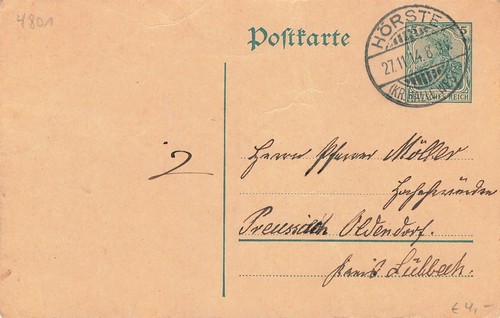 4801
Postkarte
5
HÖRSTE
27.11.14. 8
(KR. HALLE
REICH
2
Herrn Pfarrer Möller
Hochehrwürden
Preussisch Oldendorf.
Kreis Lübbecke.
€ 4,-